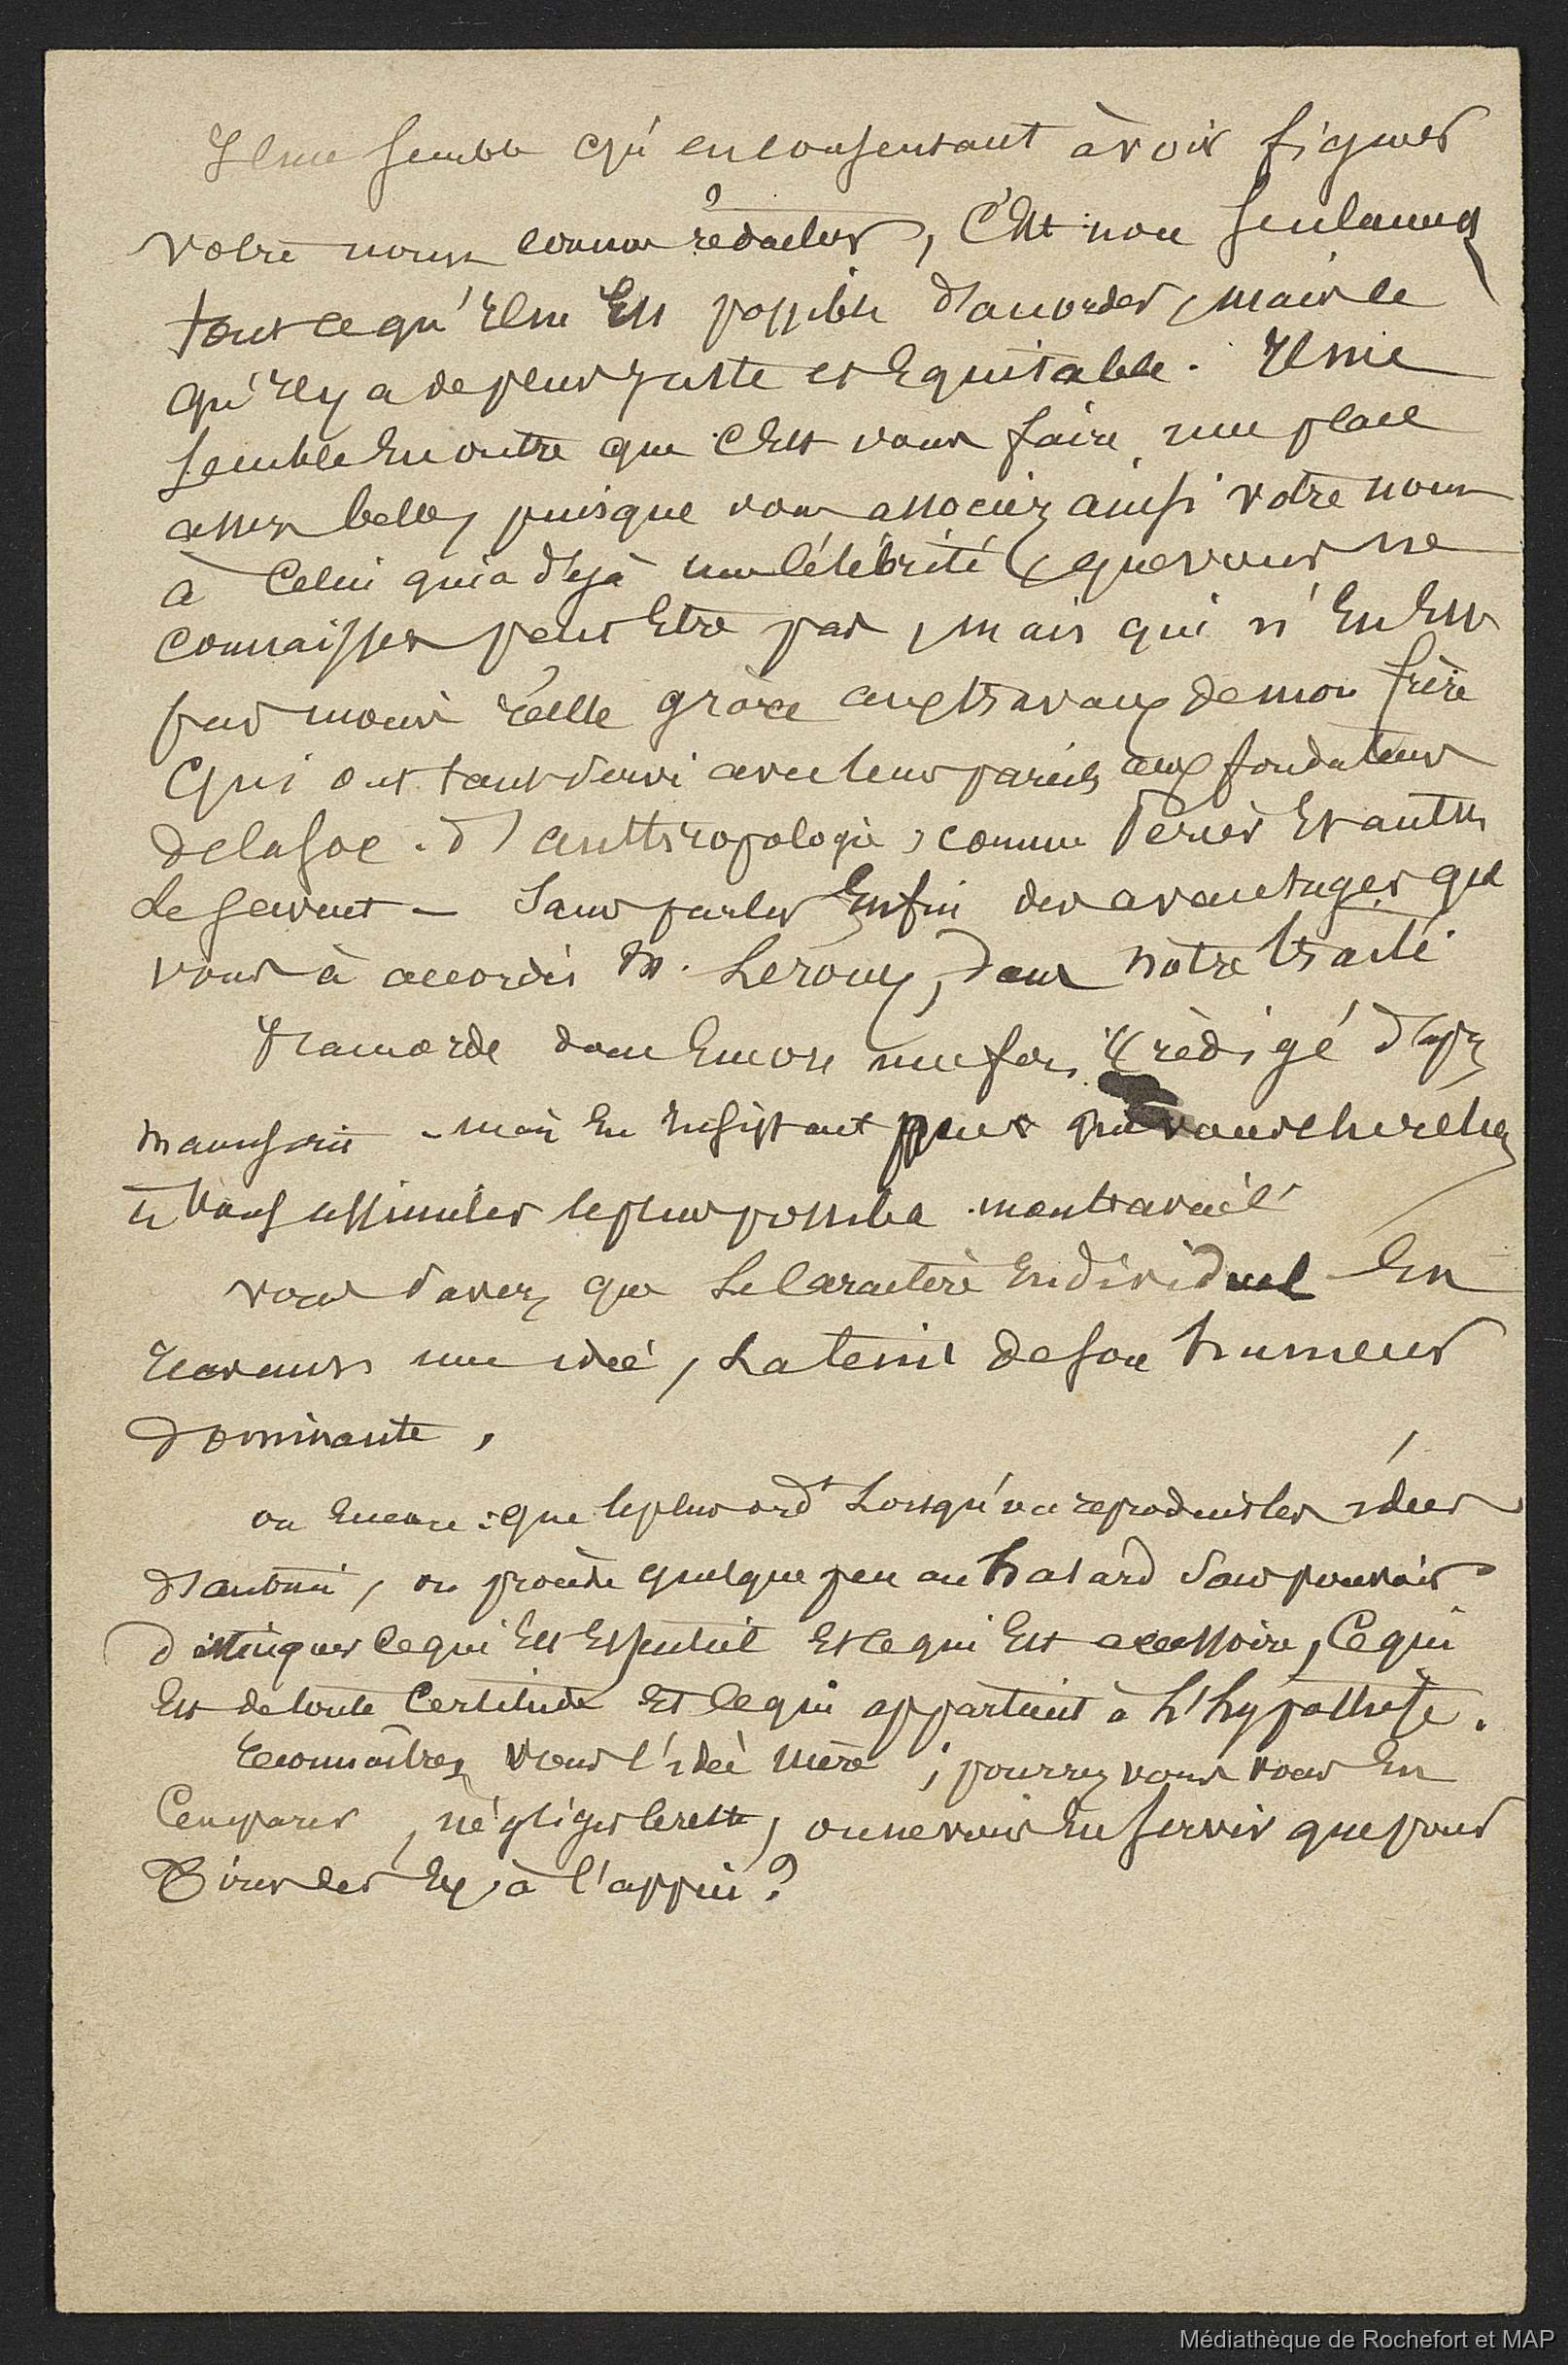 Il me semble qu'en consentant à voir figurer
votre nom comme rédacteur, C'Est non seulement
tout ce qu'Il m'Est possible d'accorder, mais ce
qu'Il y a de plus juste et Equitable. Il me
semble En outre que C'Est vous faire une place
assez belle, puisque vous associez ainsi votre nom
à Celui qui a déjà une Célébrité que vous ne
connaissez peut Etre pas, mais qui n'En Est
pas moins réelle grâce aux travaux de mon frère
Qui ont tant servi avec leurs pareils aux fondateurs
de la Soc. d'anthropologie, comme Perier Et autres
Le savent – Sans parler Enfin des avantages que
vous à accordés M. Leroux, dans nôtre traité.
J'accorde donc Encore une fois, rédigé d'apr
manuscrit – mais En Insistant pour que vous cherchiez
à vous assimiler le plus possible mon travail
vous savez que Le Caractère Individuel En
une idée, La teint de son humeur
dominante,
ou Encore : que le plus ord<sup>t</sup> Lorsqu'on reproduit les idées
d'autrui, on procède quelque peu au hasard Sans pouvoir
distinguer Ce qui Est Essentiel Et Ce qui Est accessoire, Ce qui
Est de toute Certitude Et Ce qui appartient à L'hypothèse.
reconnaîtrez vous l'idée mère ; pourrez vous vous En
Emparer, négliger le reste, ou ne vous En servir que pour
Tirer des Ex à l'appui ?
Médiathèque de Rochefort et MAP